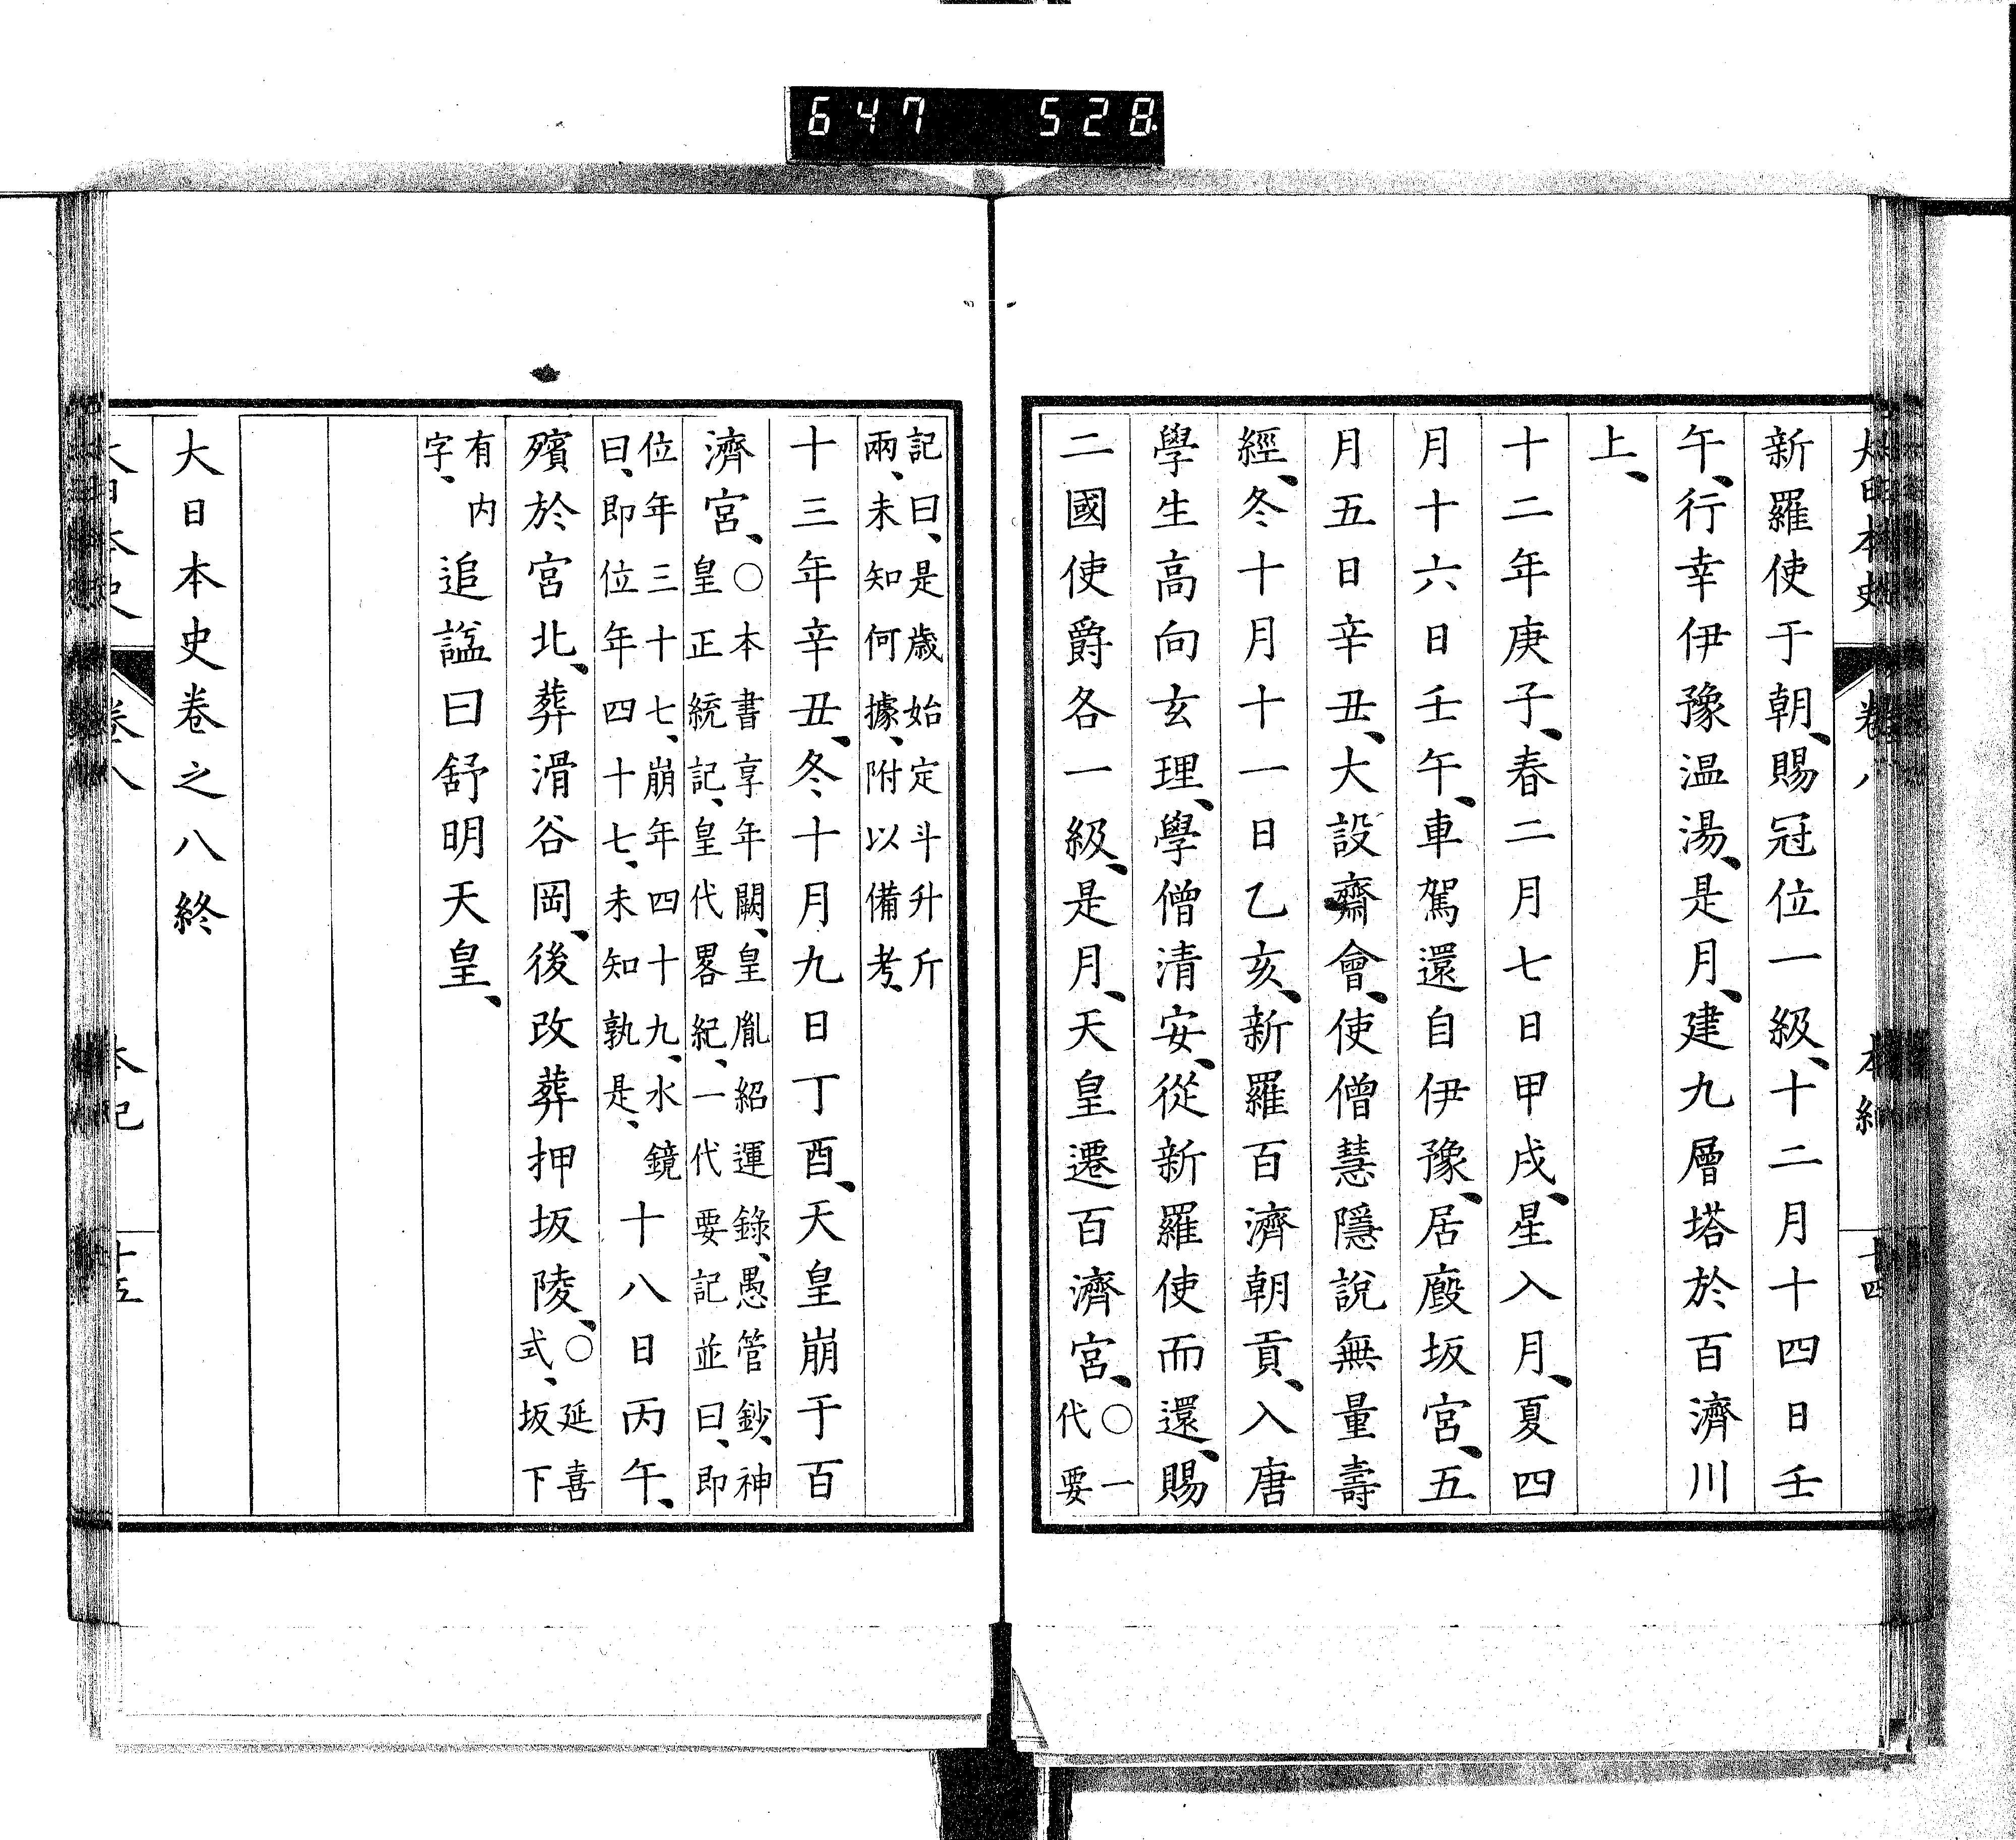 647 528
大日本史 卷八 本紀 十四
新羅使于朝、賜冠位一級、十二月十四日壬
午、行幸伊豫温湯、是月、建九層塔於百濟川
上、
十二年庚子、春二月七日甲戌、星入月、夏四
月十六日壬午、車駕還自伊豫、居廄坂宮、五
月五日辛丑、大設齋會、使僧慧隱說無量壽
經、冬十月十一日乙亥、新羅百濟朝貢、入唐
學生高向玄理、學僧清安、從新羅使而還、賜
二國使爵各一級、是月、天皇遷百濟宮、○一代要
記曰、是歲始定斗升斤
兩、未知何據、附以備考、
十三年辛丑、冬十月九日丁酉、天皇崩于百
濟宮、○本書享年闕、皇胤紹運錄、愚管鈔、神
皇正統記、皇代畧紀、一代要記並曰、即
位年三十七、崩年四十九、水鏡
曰、即位年四十七、未知孰是、十八日丙午、
殯於宮北、葬滑谷岡、後改葬押坂陵、○延喜式、坂下
有内
字、追諡曰舒明天皇、
大日本史卷之八終
大日本史 卷八 本紀 十五